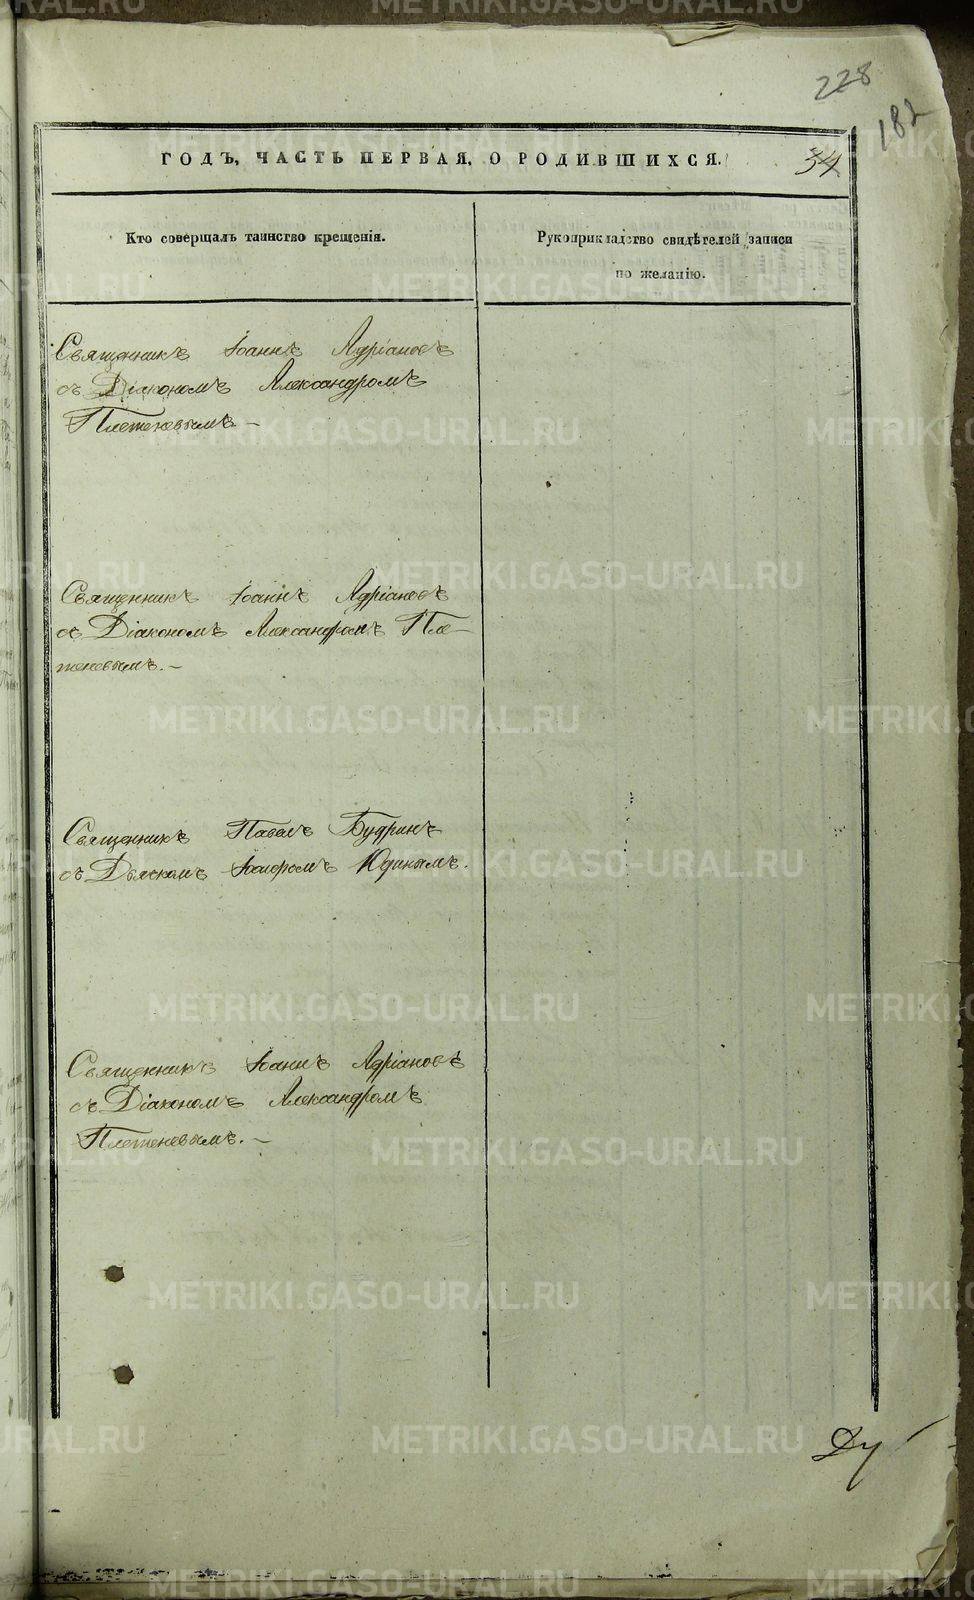 228
182
ГОДЪ, ЧАСТЬ ПЕРВАЯ, О РОДИВШИХСЯ.
34
Кто совершалъ таинство крещенія.
Рукоприкладство свидѣтелей записи
по желанію.
Священникъ Іоаннъ Адріановъ
съ Діакономъ Александромъ
Плетеневымъ. —
Священникъ Іоаннъ Адріановъ
съ Діакономъ Александромъ Пле-
теневымъ. —
Священникъ Павелъ Будринъ
съ Дьячкомъ Іосифомъ Юдинымъ.
Священникъ Іоаннъ Адріановъ
съ Діакономъ Александромъ
Плетеневымъ. —
METRIKI.GASO-URAL.RU